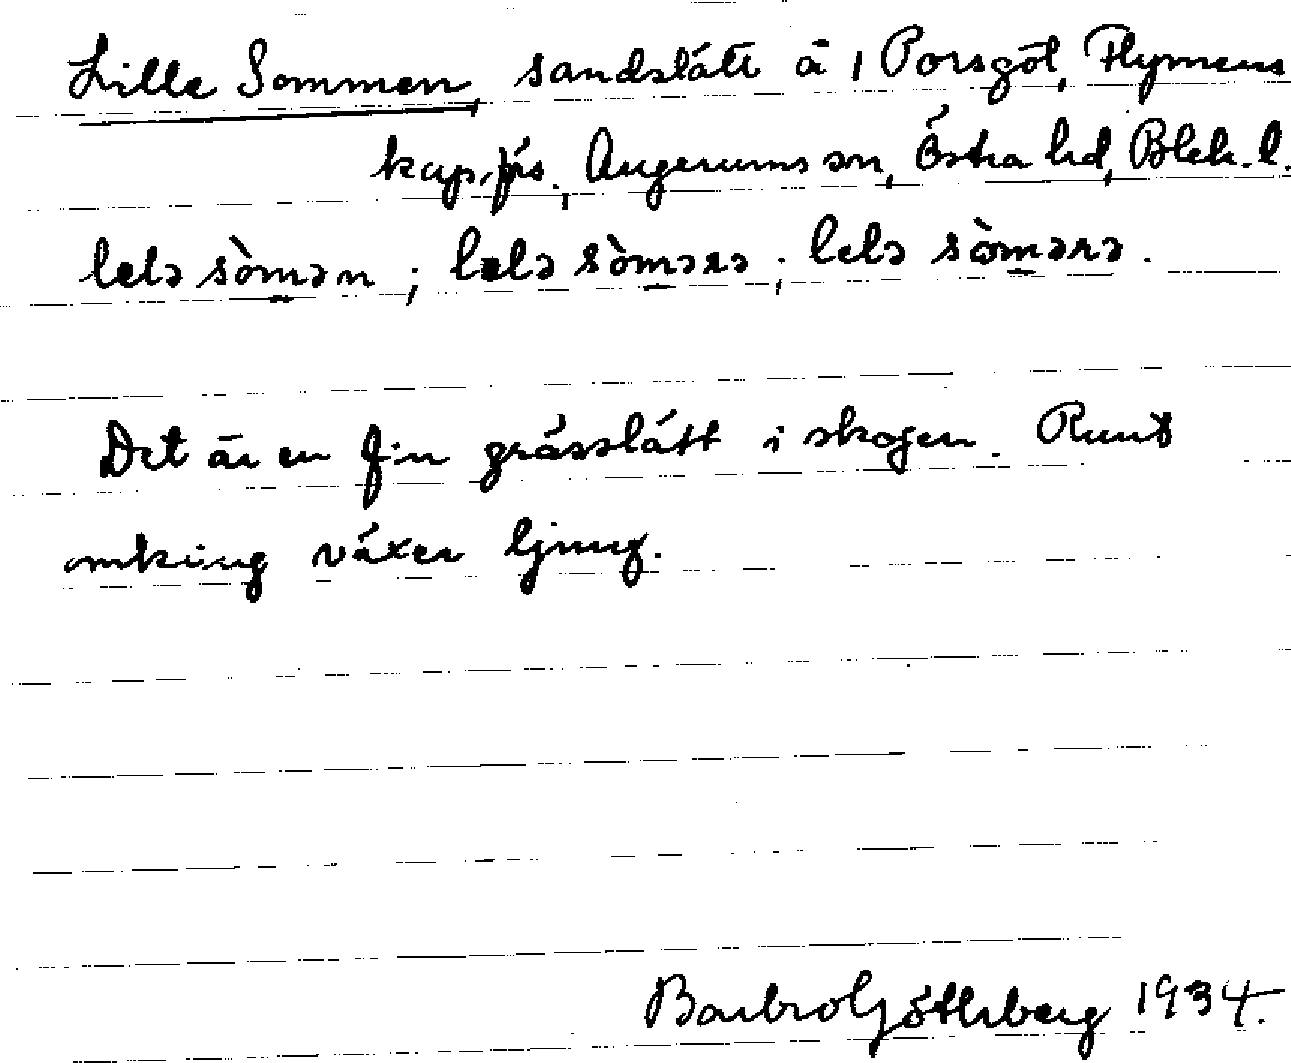 Lille Sommen, sandslätt å 1 Porsgöl, Flymens
kap.förs., Augerums sn, Östra hd, Blek. l.
lelə sòmən ; lelə sòmərə ; lelə sòmərə .
Det är en fin grässlätt i skogen. Runt
omkring växer ljung.
Barbro Göthberg 1934.